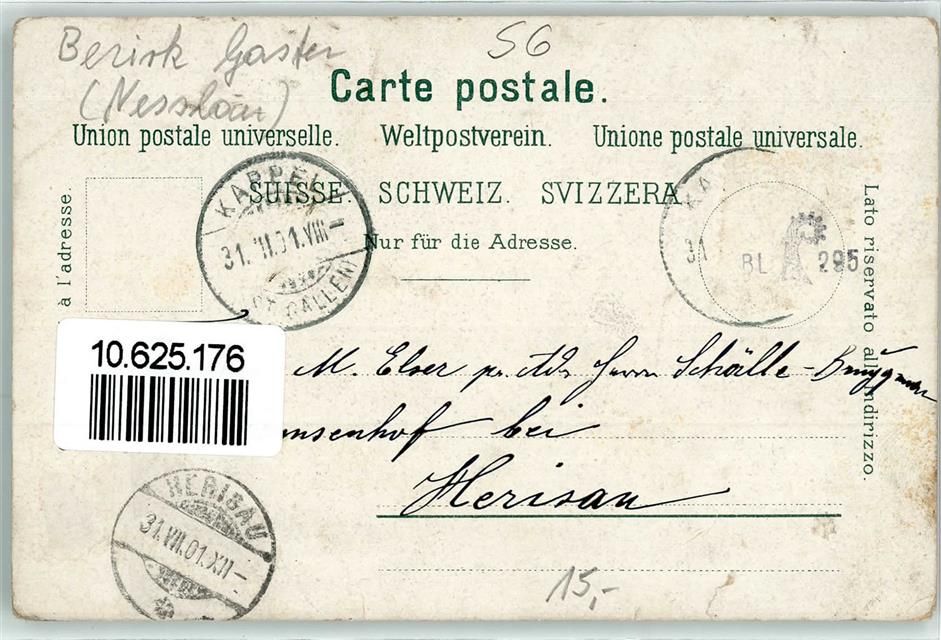 Bezirk Gaster
56
(Nesslau)
Carte postale.
Union postale universelle. Weltpostverein. Unione postale universale.
SUISSE. SCHWEIZ. SVIZZERA
Nur für die Adresse.
à l'adresse.
Lato riservato all'indirizzo.
KAPPEL
31.VII.01.VIII–
(ST. GALLEN)
KA
31
BL 295
10.625.176
M. Elser pr. Adr. Herrn Schälle-Bruggmann
nsenhof bei
Herisau
HERISAU
31.VII.01.XII–
15,-